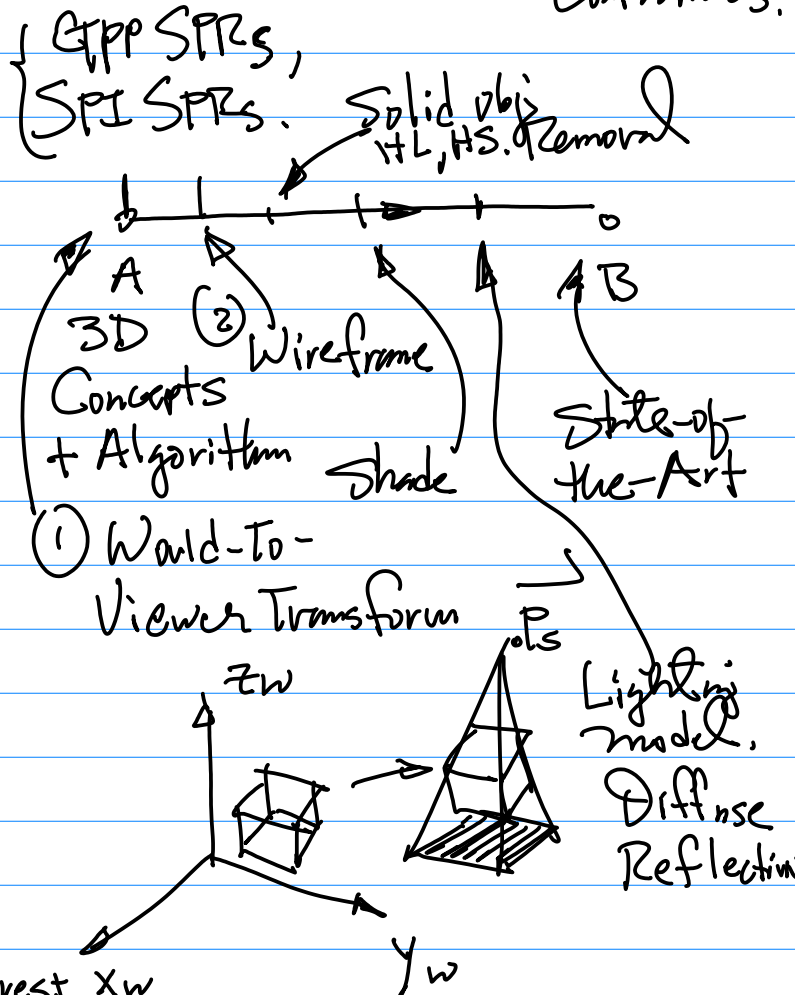 GPP SPRs,
SPI SPRs.
Solid obj
HL, HS. Removal
A
B
3D
Concepts
+ Algorithm
② Wireframe
Shade
State-of-
the-Art
① World-To-
Viewer Transform
Ps
Zw
Lighting
model.
Diffuse
Reflection
Yw
Xw